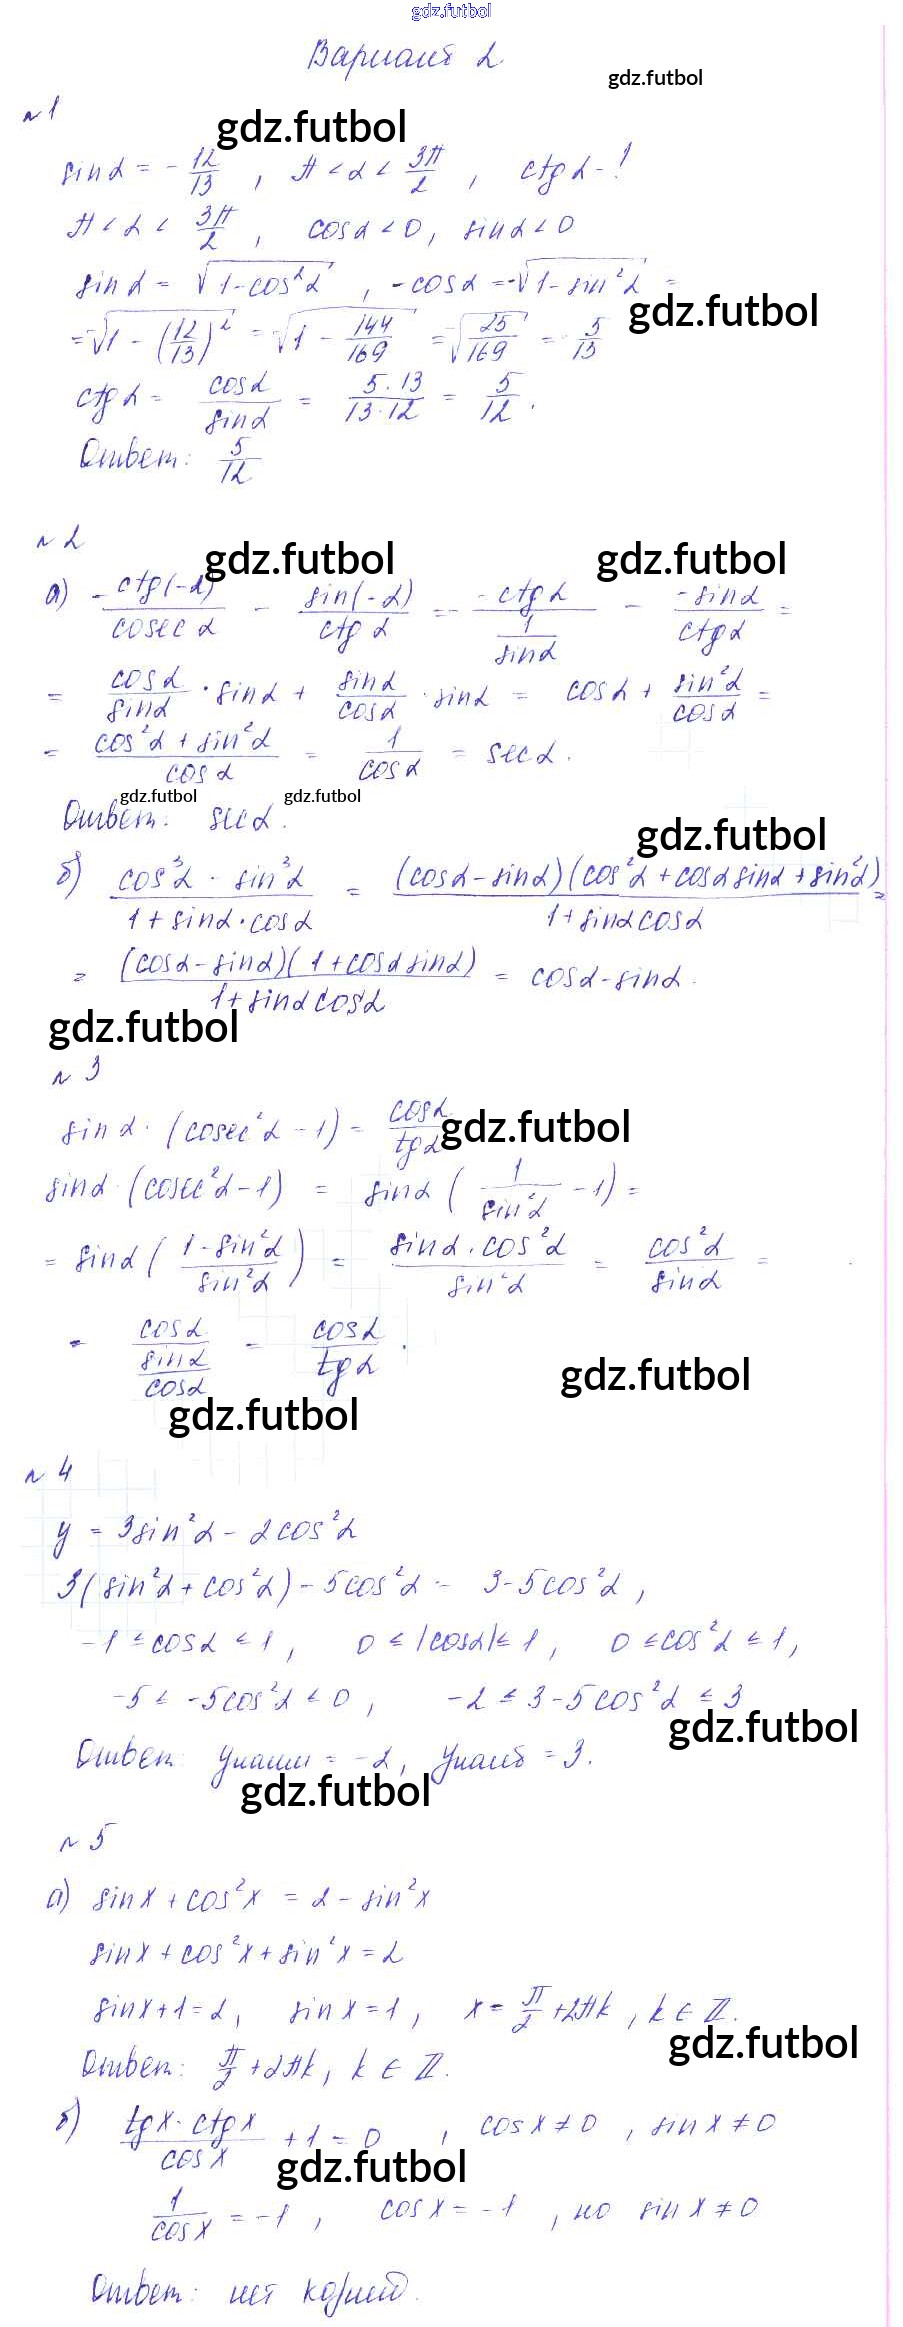 gdz.futbol
Вариант 2
gdz.futbol
№1
gdz.futbol
sin α = - 12/13 , π < α < 3π/2 , ctg α - !
π < α < 3π/2 , cos α < 0, sin α < 0
sin α = √(1 - cos²α) , - cos α = -√(1 - sin²α) =
gdz.futbol
= -√(1 - (12/13)²) = -√(1 - 144/169) = -√(25/169) = - 5/13
ctg α = cos α / sin α = 5·13 / 13·12 = 5/12 .
Ответ: 5/12
№2
gdz.futbol gdz.futbol
а) - ctg(-α) / cosec α - sin(-α) / ctg α = - -ctg α / (1 / sin α) - -sin α / ctg α =
= cos α / sin α · sin α + sin α / cos α · sin α = cos α + sin²α / cos α =
= (cos²α + sin²α) / cos α = 1 / cos α = sec α .
gdz.futbol gdz.futbol
Ответ: sec α .
gdz.futbol
б) (cos³α · sin³α) / (1 + sin α · cos α) = (cos α - sin α)(cos²α + cos α sin α + sin²α) / (1 + sin α cos α) =
= (cos α - sin α)(1 + cos α sin α) / (1 + sin α cos α) = cos α - sin α .
gdz.futbol
№3
sin α · (cosec²α - 1) = cos α / tg α
gdz.futbol
sin α · (cosec²α - 1) = sin α (1 / sin²α - 1) =
= sin α ((1 - sin²α) / sin²α) = sin α · cos²α / sin²α = cos²α / sin α =
= cos α / (sin α / cos α) = cos α / tg α .
gdz.futbol
gdz.futbol
№4
y = 3sin²α - 2cos²α
3(sin²α + cos²α) - 5cos²α - 3 - 5cos²α ,
-1 ≤ cos α ≤ 1 , 0 ≤ |cos α| ≤ 1 , 0 ≤ cos²α ≤ 1 ,
-5 ≤ -5cos²α ≤ 0 , -2 ≤ 3 - 5cos²α ≤ 3
gdz.futbol
Ответ: yнаим = -2, yнаиб = 3.
gdz.futbol
№5
а) sin x + cos²x = 2 - sin²x
sin x + cos²x + sin²x = 2
sin x + 1 = 2, sin x = 1 , x = π/2 + 2πk , k ∈ ℤ.
gdz.futbol
Ответ: π/2 + 2πk, k ∈ ℤ.
б) tg x · ctg x / cos x + 1 = 0 , cos x ≠ 0 , sin x ≠ 0
gdz.futbol
1 / cos x = -1 , cos x = -1 , но sin x ≠ 0
Ответ: нет корней.